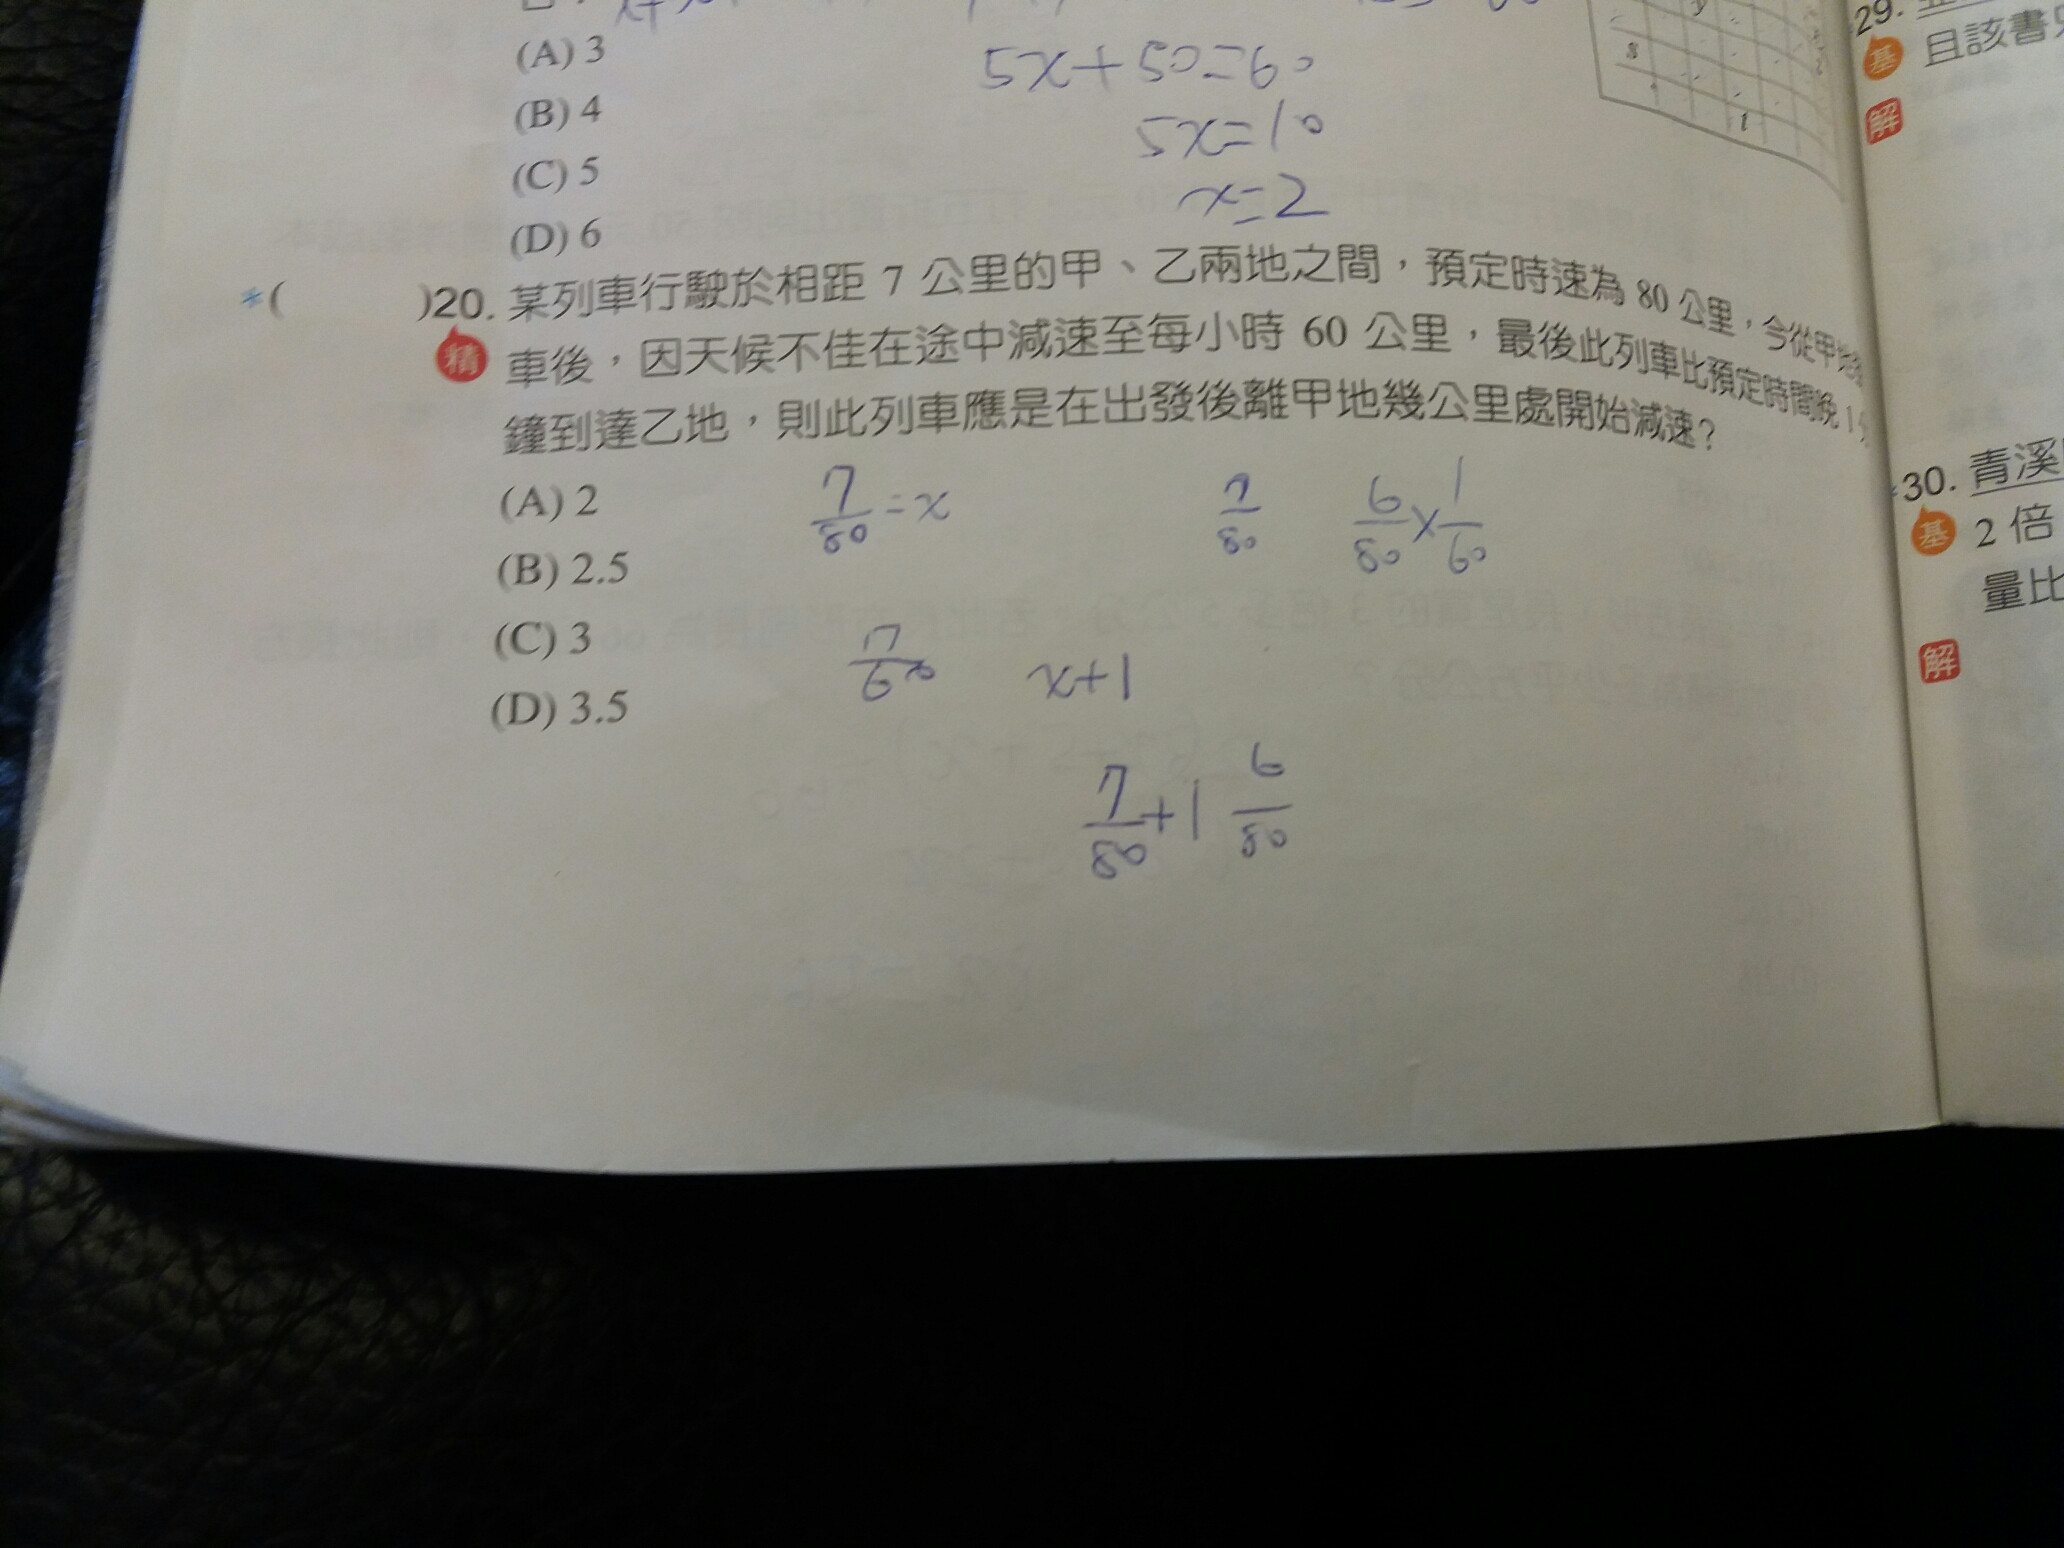 (A) 3
(B) 4
(C) 5
(D) 6
5x+50=60
5x=10
x=2
*( )20. 某列車行駛於相距 7 公里的甲、乙兩地之間，預定時速為 80 公里，今從甲地
精 車後，因天候不佳在途中減速至每小時 60 公里，最後此列車比預定時間晚 1 分
鐘到達乙地，則此列車應是在出發後離甲地幾公里處開始減速？
(A) 2
(B) 2.5
(C) 3
(D) 3.5
7/80=x
7/80 6/80×1/60
7/60 x+1
7/80+1 6/80
29.
基 且該書
解
*30. 青溪
基 2 倍
量比
解